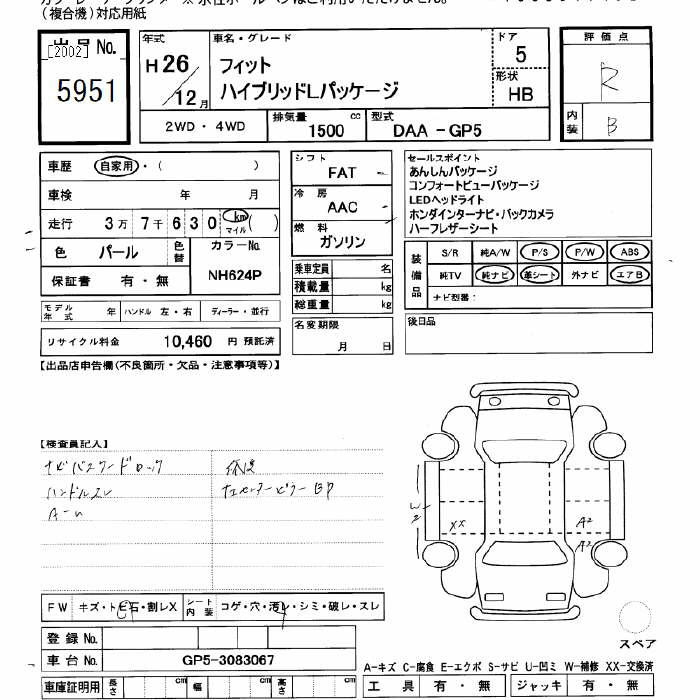 (複合機)対応用紙
出品 No.
[2002]
5951
年式
H 26
/12 月
車名・グレード
フィット
ハイブリッドLパッケージ
ドア
5
形状
HB
2WD・4WD
排気量
1500 cc
型式
DAA -GP5
評価点
R
内装
B
車歴 自家用・( )
車検 年 月
走行 3万 7千 6 3 0 km マイル( )
色 パール
色替
カラーNo.
NH624P
保証書 有・無
モデル年式 年
ハンドル 左・右
ディーラー・並行
リサイクル料金 10,460 円 預託済
シフト
FAT
冷房
AAC
燃料
ガソリン
乗車定員 名
積載量 kg
総重量 kg
名変期限
月 日
セールスポイント
あんしんパッケージ
コンフォートビューパッケージ
LEDヘッドライト
ホンダインターナビ・バックカメラ
ハーフレザーシート
装備品
S/R 純A/W P/S P/W ABS
純TV 純ナビ 革シート 外ナビ エアB
ナビ型番:
後日品
【出品店申告欄(不良箇所・欠品・注意事項等)】
【検査員記入】
ナビパスワードロック
ハンドルスレ
修復
センターピラー BP
W2
XX
A2
A2
FW キズ・トビ石・割レX
シート内装 コゲ・穴・汚レ・シミ・破レ・スレ
登録 No.
車台 No. GP5-3083067
車庫証明用 長さ cm 幅 cm 高さ cm
スペア
A-キズ C-腐食 E-エクボ S-サビ U-凹ミ W-補修 XX-交換済
工具 有・無 ジャッキ 有・無